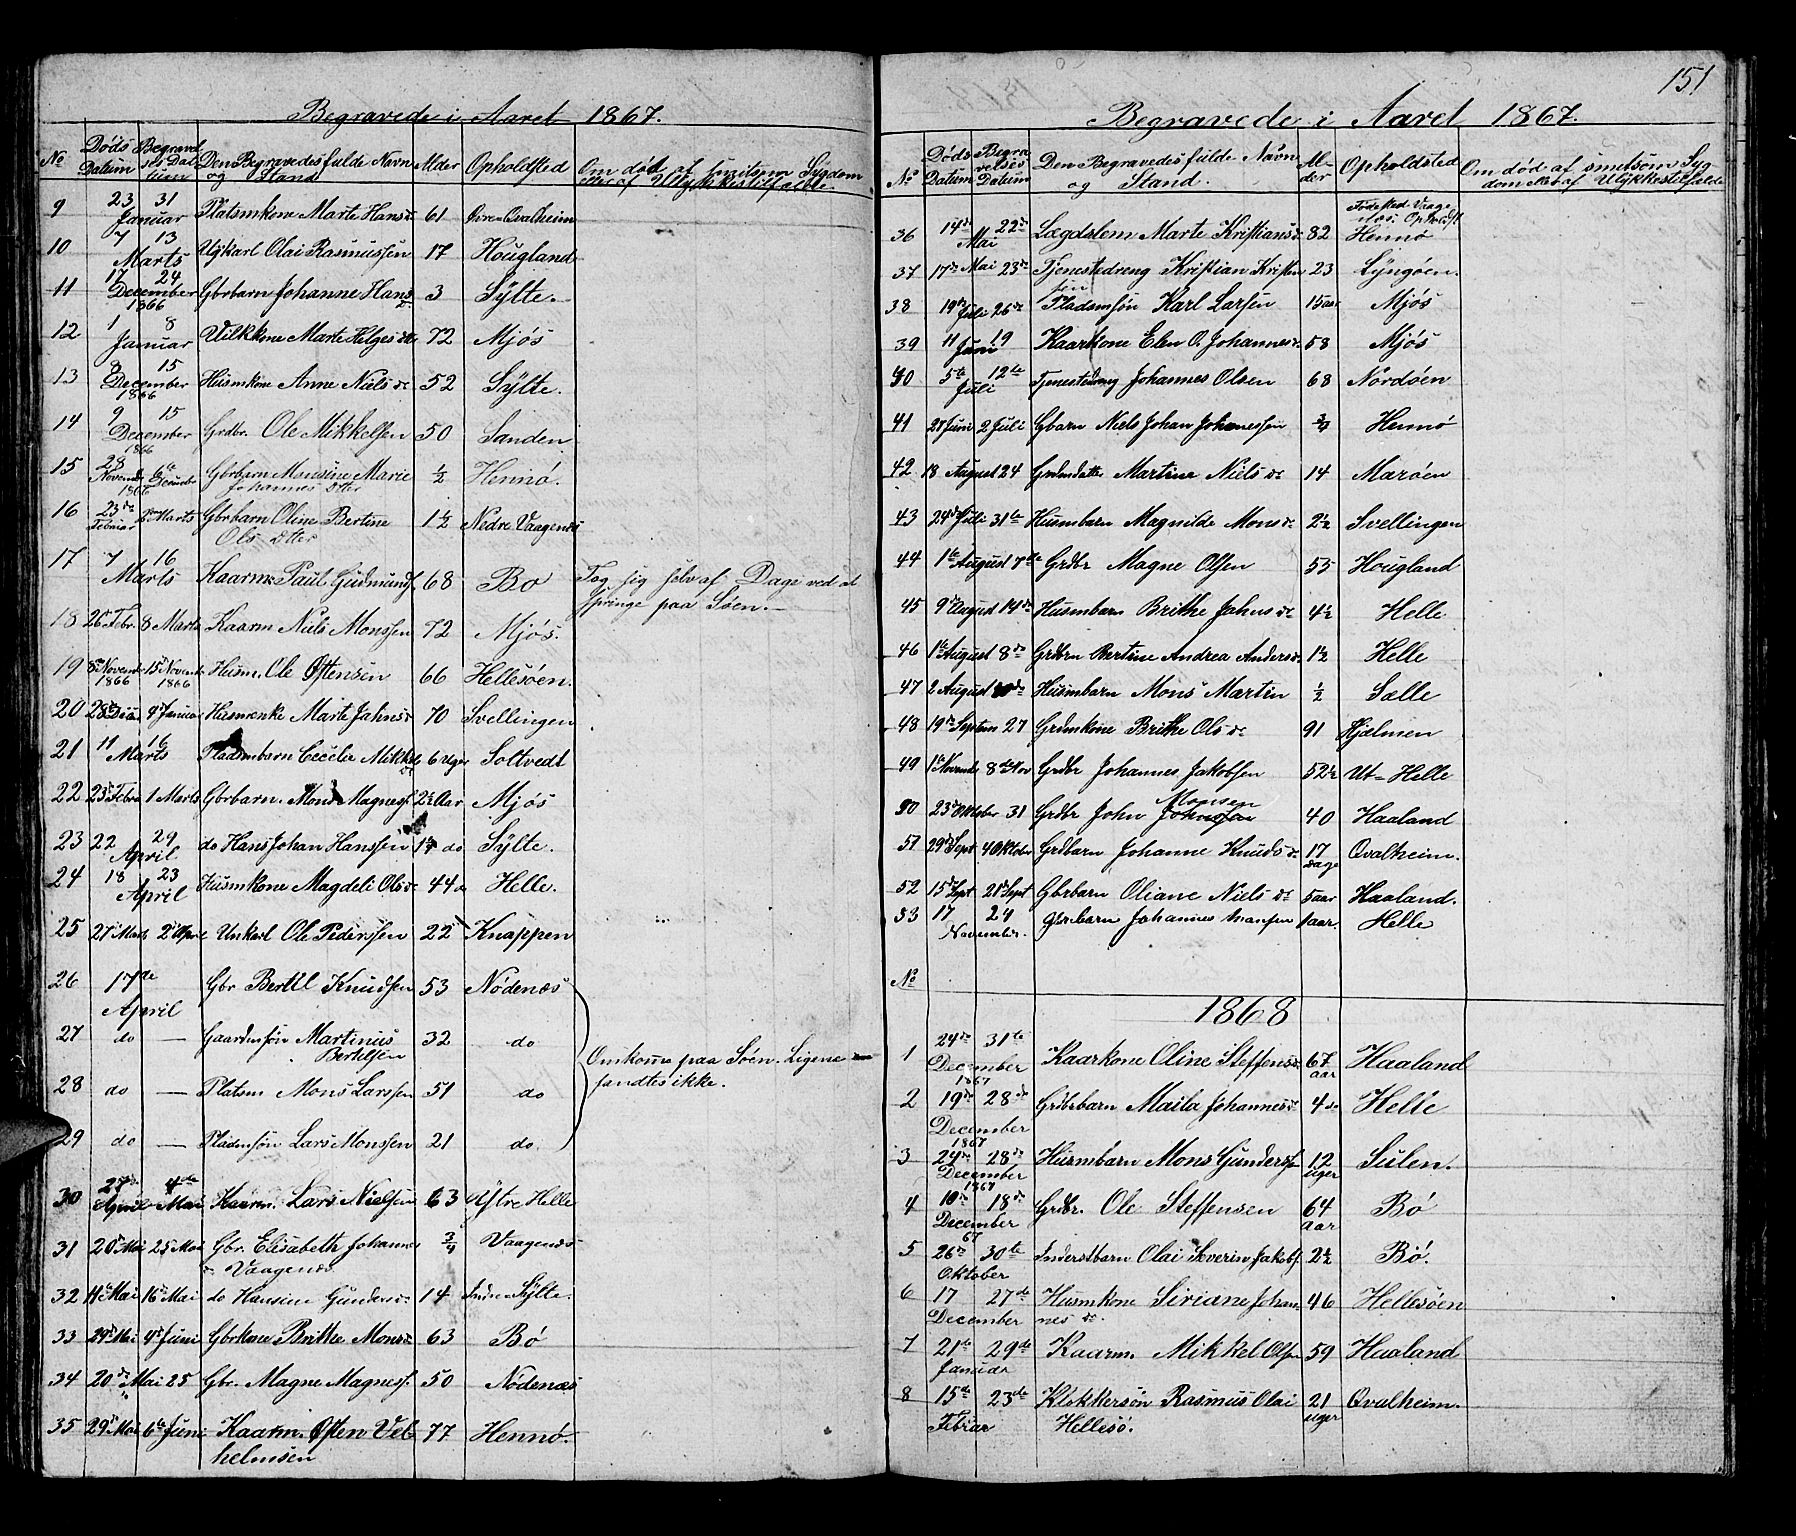 Begravede i Aaret 1867.
No Døds Datum Begravelses Datum Den Begravedes fulde Navn og Stand Alder Opholdsted Om død af smitsom Sygdom eller af Ulykkestilfælde
9 23 Januar 31 Platsmkone Marte Hansd 61 Øvre-Qvalheim
10 7 Marts 13 Ugkarl Olai Rasmussen 17 Hougland
11 17 December 1866 24 Gbrbarn Johanne Hansd 3 Sylte.
12 1 Januar 8 Vilkkone Marte Helges dr 72 Mjøs
13 8 December 1866 15 Husmkone Anne Niels dr 52 Sylte.
14 9 December 1866 15 Grdbr. Ole Mikkelsen 50 Sanden
15 28 Novemb 1866 6te December Gbrbarn Monsine Marie Johannes Dtter 1/2 Hennø.
16 23de Februar 2 Marts Gbrbarn Oline Bertine Ols Dtter 1 1/2 Nedre Vaagenæs
17 7 Marts 16 Kaarm. Paul Gudmunds. 68 Bø Tog sig selv af Dage ved at springe paa Søen.
18 26 Febr. 8 Marts Kaarm Niels Monssen 72 Mjøs.
19 8de Novemb 1866 15de Novemb 1866 Husm. Ole Østensen 66 Hellesøen.
20 28de Decb 4de Januar Husmenke Marte Jahnsd 70 Svellingen
21 11 Marts 16 Pladsmbarn Cecilie Mikkels dr 6 Uger Soltvedt
22 23 Febr 1 Marts Gbrbarn. Mons Magness. 2 1/2 Aar Mjøs
23 22 April 29 do Hans Johan Hanssen 1 1/4 do Sylte.
24 18 April 23 Husmkone Magdeli Olsdr 44 a Helle.
25 27 Marts 2 April Unkarl Ole Pedersen 22 Knappen
26 17de April Gbr Bertil Knudsen 53 Nødenæs
27 do — Gaardmsøn Martinus Bertelsen 32 do Omkomne paa Søen. Ligene
28 do — Platsm Mons Larssen 51 do fandtes ikke.
29 do — Pladsmsøn Lars Monssen 21 do.
30 27de April 4de Mai Kaarm. Lars Nielsen 63 Ystre Helle
31 20 Mai 25 Mai Gbr. Elisabeth Johannes dr Vaagenæs 3/4 Vaagenæs
32 11te Mai 16 Mai do Hansine Gundersdr 14 Indre Sylte.
33 29d Mai 4de Juni Gbrkone Brithe Monsd 63 Bø
34 20de Mai 25 Gbr. Magne Magness. 50 Nødenæs
35 29d Mai 6te Juni Kaarm. Østen Velhelmsen 77 Hennø.
151
Begravede i Aaret 1867.
No Døds Datum Begravelses Datum Den Begravedes fulde Navn og Stand. Alder Opholdsted Om død af smitsom Sygdom eller af Ulykkestilfælde
36 14de Mai 22de Lægdslem Marte Kristiansdr 82 Fødested Vaagenæs. Opholdst Hennø
37 17de Mai 23de Tjenestedreng Kristian Kristensen 23 Lyngøen.
38 19de Juli 26de Pladsmsøn Karl Larsen 1 1/2 aar Mjøs
39 11 Juni 19 Kaarkone Elen O. Johannesd. 58 Mjøs
40 5te Juli 12te Tjenestedreng Johannes Olsen 68 Nordøen
41 28 Juni 2 Juli Gbarn Niels Johan Johannessen 3/4 Hennø
42 18 August 24 Grdmdatter Martine Niels dr 14 Marøen
43 24de Juli 31te Husmbarn Magnilde Monsdr 2 1/2 Svellingen
44 1te August 7de Grdbr Magne Olsen 55 Hougland
45 9de August 14de Husmbarn Brithe Jahnsdr 4 1/2 Helle
46 1te August 8de Grdbrn Bertine Andrea Andersd. 1 1/2 Helle
47 2 August Husmbarn Mons Martin 1/2 Sælle
48 19de Septem 27 Grdmkone Brithe Ols dr 91 Hjelmen
49 1te Novemb 8de Nov Grdbr Johannes Jakobsen 52 1/2 Ut-Helle
50 23de Oktober 31 Grdbr John Monsen 40 Haaland
51 29de Sept 4 Oktober Grdbarn Johanne Knudsdr 17 Dage Qvalheim.
52 15de Sept 21de Sept Gbrbarn Oliane Niels dr 5 aar Haaland.
53 17 November. 24 Gbrbarn Johannes Mansen 1 aar. Helle
No
1868
1 24de December 1867 31te Kaarkone Oline Steffensdr 67 aar Haaland
2 19de December 1867 28de Grdbrbarn Maila Johannesdr 4 do Helle
3 24de December 1867 28de Husmbarn Mons Gunders. 12 uger Sulen.
4 10de December 67 18de Grdbr. Ole Steffensen 64 aar Bø
5 26de Oktober 30te Inderstbarn Olai Severin Jakobs. 2 1/2 Bø.
6 17 December 27de Husmkone Siriane Johannes dr. 46 Hellesøen
7 21te Januar 29de Kaarm. Mikkel Olsen 59 Haaland
8 15de Februar 23de Klokkersøn Rasmus Olai Hellesø. 21 uger Qvalheim.